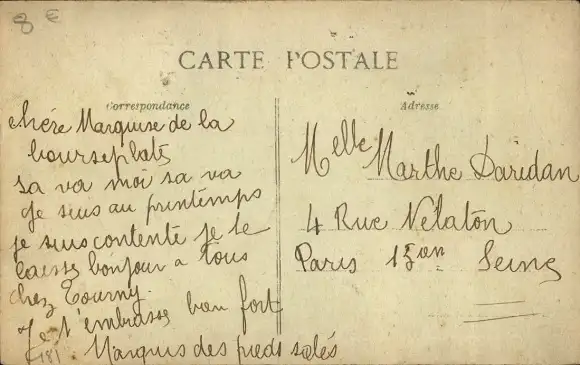 8 €
CARTE POSTALE
Correspondance
Adresse
chére Marquise de la
bourseplate
sa va moi sa va
Je suis au printemps
je suis contente je te
laisse bonjour a tous
chez Tourny.
Je t'embrasse bon fort
Marquis des pieds salés
Melle Marthe Daridan
4 Rue Nelaton
Paris 15en Seine